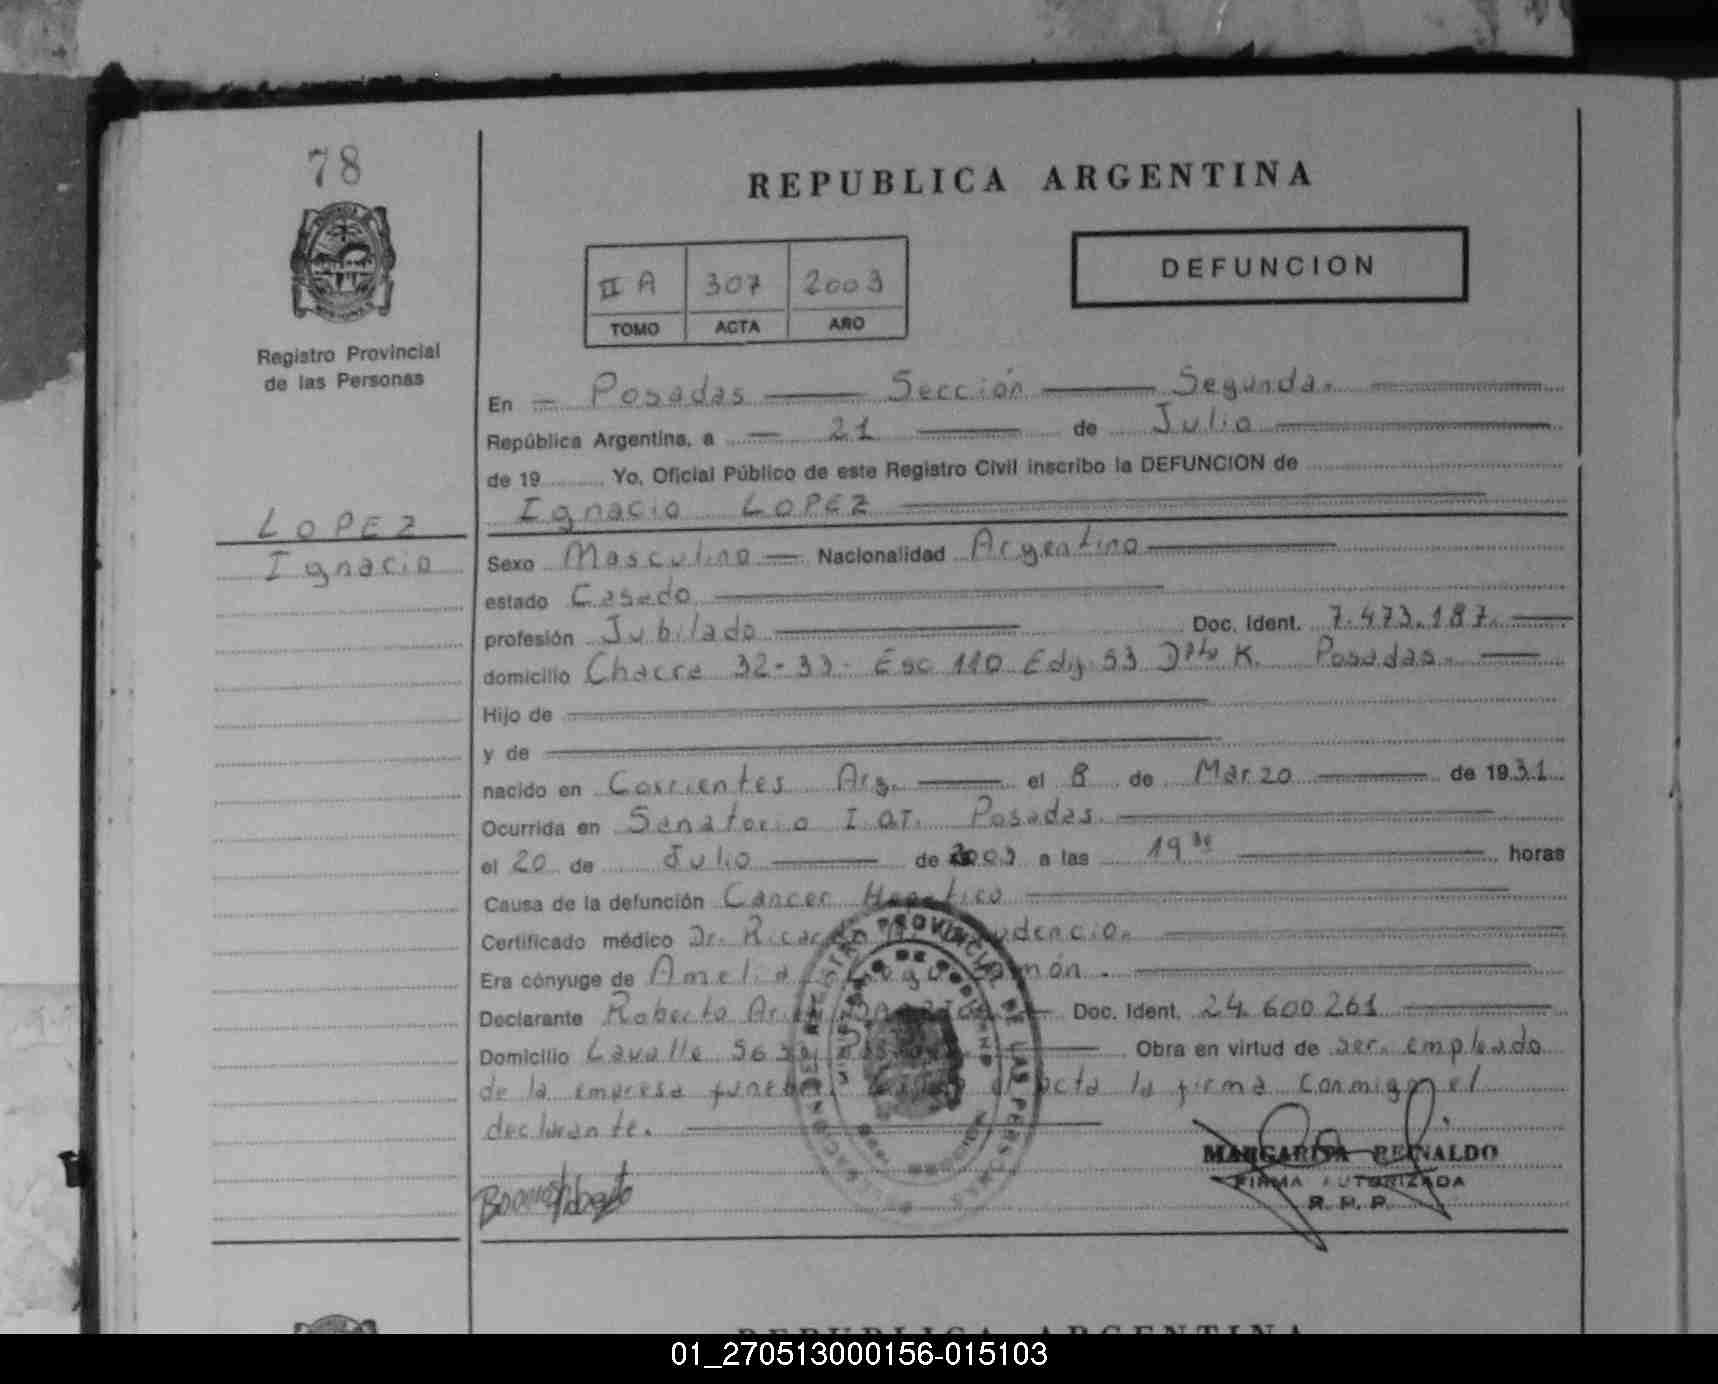 78
REPUBLICA ARGENTINA
DEFUNCION
II A 307 2003
TOMO ACTA AÑO
Registro Provincial
de las Personas
En Posadas Sección Segunda.
República Argentina, a 21 de Julio
de 19 Yo, Oficial Público de este Registro Civil inscribo la DEFUNCION de
Ignacio LOPEZ
LOPEZ
Ignacio
Sexo Masculino Nacionalidad Argentino
estado Casado
profesión Jubilado Doc. Ident. 7.473.187.
domicilio Chacra 32-33- Esc 110 Edif 53 Dpto K. Posadas.
Hijo de
y de
nacido en Corrientes Arg. el 8 de Marzo de 1931
Ocurrida en Sanatorio I.OT. Posadas.
el 20 de Julio de 2003 a las 19 30 horas
Causa de la defunción Cancer Hepatico
Certificado médico Dr. Ricardo
Era cónyuge de Amelia
Declarante Roberto Doc. Ident. 24.600.261
Domicilio Lavalle Obra en virtud de ser empleado
de la empresa acta la firma conmigo el
declarante.
REGISTRO PROVINCIAL DE LAS PERSONAS
MARGARITA REINALDO
FIRMA AUTORIZADA
R. P. P.
REPUBLICA ARGENTINA
01_270513000156-015103